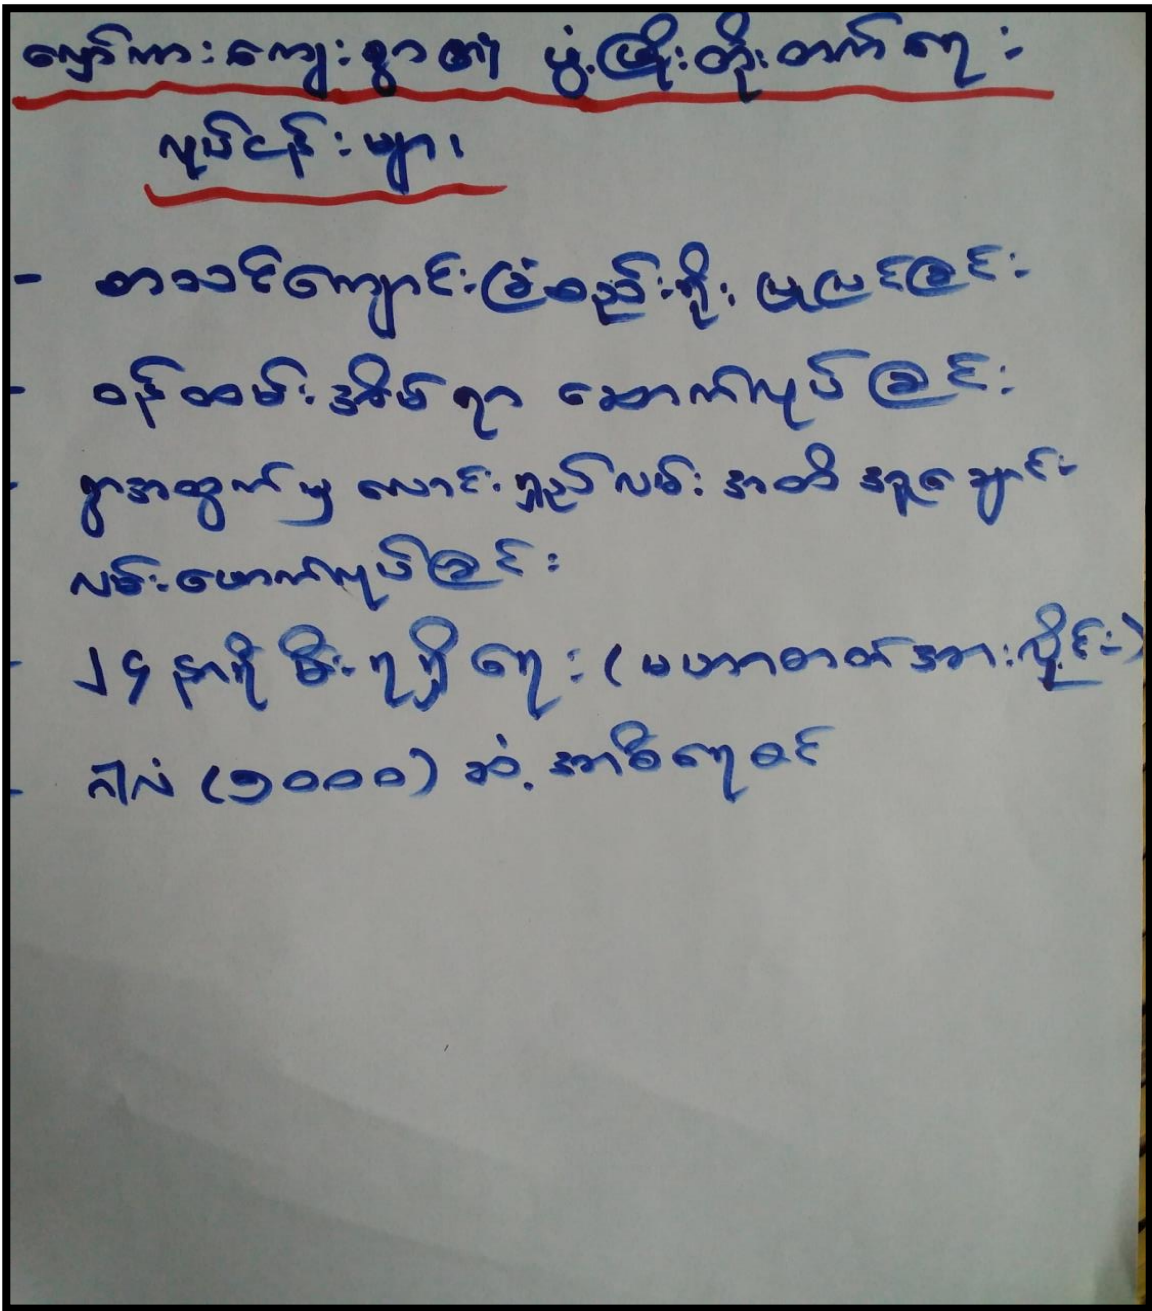 မျှော်ကားကျေးရွာ၏ ဖွံ့ဖြိုးတိုးတက်ရေး
လုပ်ငန်းများ
- စာသင်ကျောင်းခြံစည်းရိုး ပြုပြင်ခြင်း
- ဝန်ထမ်းအိမ်ရာ ဆောက်လုပ်ခြင်း
- ရွာအထွက်မှ လောင်းရှည်လမ်း အထိ အုတ်ချောင်း
လမ်းဖောက်လုပ်ခြင်း
- ၂၄ နာရီ မီးရရှိရေး (မဟာဓာတ်အားလိုင်း)
- ဂါလံ (၅၀၀၀) ဆံ့ အာစီရေစင်